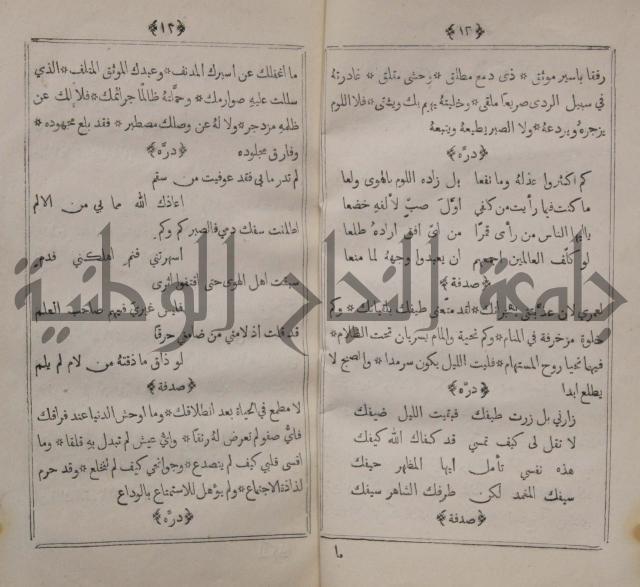 ﴿١٢﴾
رفقا باسير موثق * ذى دمع مطلق * وحشى مقلق * غادرته
في سبيل الردى صريعا ملقى * وخليته يهيم بك ويشقى * فلا اللوم
يزجره ويردعه * ولا الصبر يطيعه ويتبعه
﴿درّه﴾
كم اكثروا عذله وما نفعا بل زاده اللوم بالهوى ولعا
ما كنت فيما رأيت من كلفي اوّل صبّ لألفه خضعا
يا ايها الناس من رأى قمرًا من اىّ افق اراده طلعا
لو كلّف العالمين اجمعهم ان يعبدوا وجهه لما منعا
﴿صدفة﴾
لعمري لان عذّبتني بهجرانك * لقد متّعني طيفك باتيانك * وكم
خلوة مزخرفة في المنام * وكم تحية والمام يسريان تحت الظلام *
فيها تحيا روح المستهام * فليت الليل يكون سرمدا * والصبح لا
يطلع ابدا
﴿درّه﴾
زارني بل زرت طيفك فبقيت الليل ضيفك
لا تقل لي كيف تمسي قد كفاك الله كيفك
هذه نفسي تأمل ايها المظهر حيفك
سيفك المغمد لكن طرفك الشاهر سيفك
﴿صدفة﴾
﴿١٣﴾
ما اغفلك عن أسيرك المدنف * وعبدك الموثق المتلف * الذي
سللت عليه صوارمك * وحمّلته ظالمًا جرائمك * فلا لك عن
ظلمه مزدجر * ولا له عن وصلك مصطبر * فقد بلغ مجهوده *
وفارق مجلوده ﴿درّه﴾
لم تدر ما بي فقد عوفيت من سقم
اعاذك الله مما بي من الالم
اطلت سفك دمي فالصبر كم وكم
أسهرتني فنم اهلكتني فدم
سبقت اهل الهوى حتى اقتفوا اثرى
فليس غيري فيهم صاحب العلم
قد قلت اذ لامني من ضامني حرقا
لو ذاق ما ذقته من لام لم يلم
﴿صدفة﴾
لا مطمع في الحياة بعد انطلاقك * وما اوحش الدنيا عند فراقك
فايّ صفو لم تعرض له رنقا * وايّ عيش لم تبدل به قلقا * وما
اقسى قلبي كيف لم يتصدع * وجوانحي كيف لم تتخلع * وقد حرم
لذاذة الاجتماع * ولم يؤهل للاستمتاع بالوداع
﴿درّه﴾
جامعة النجاح الوطنية